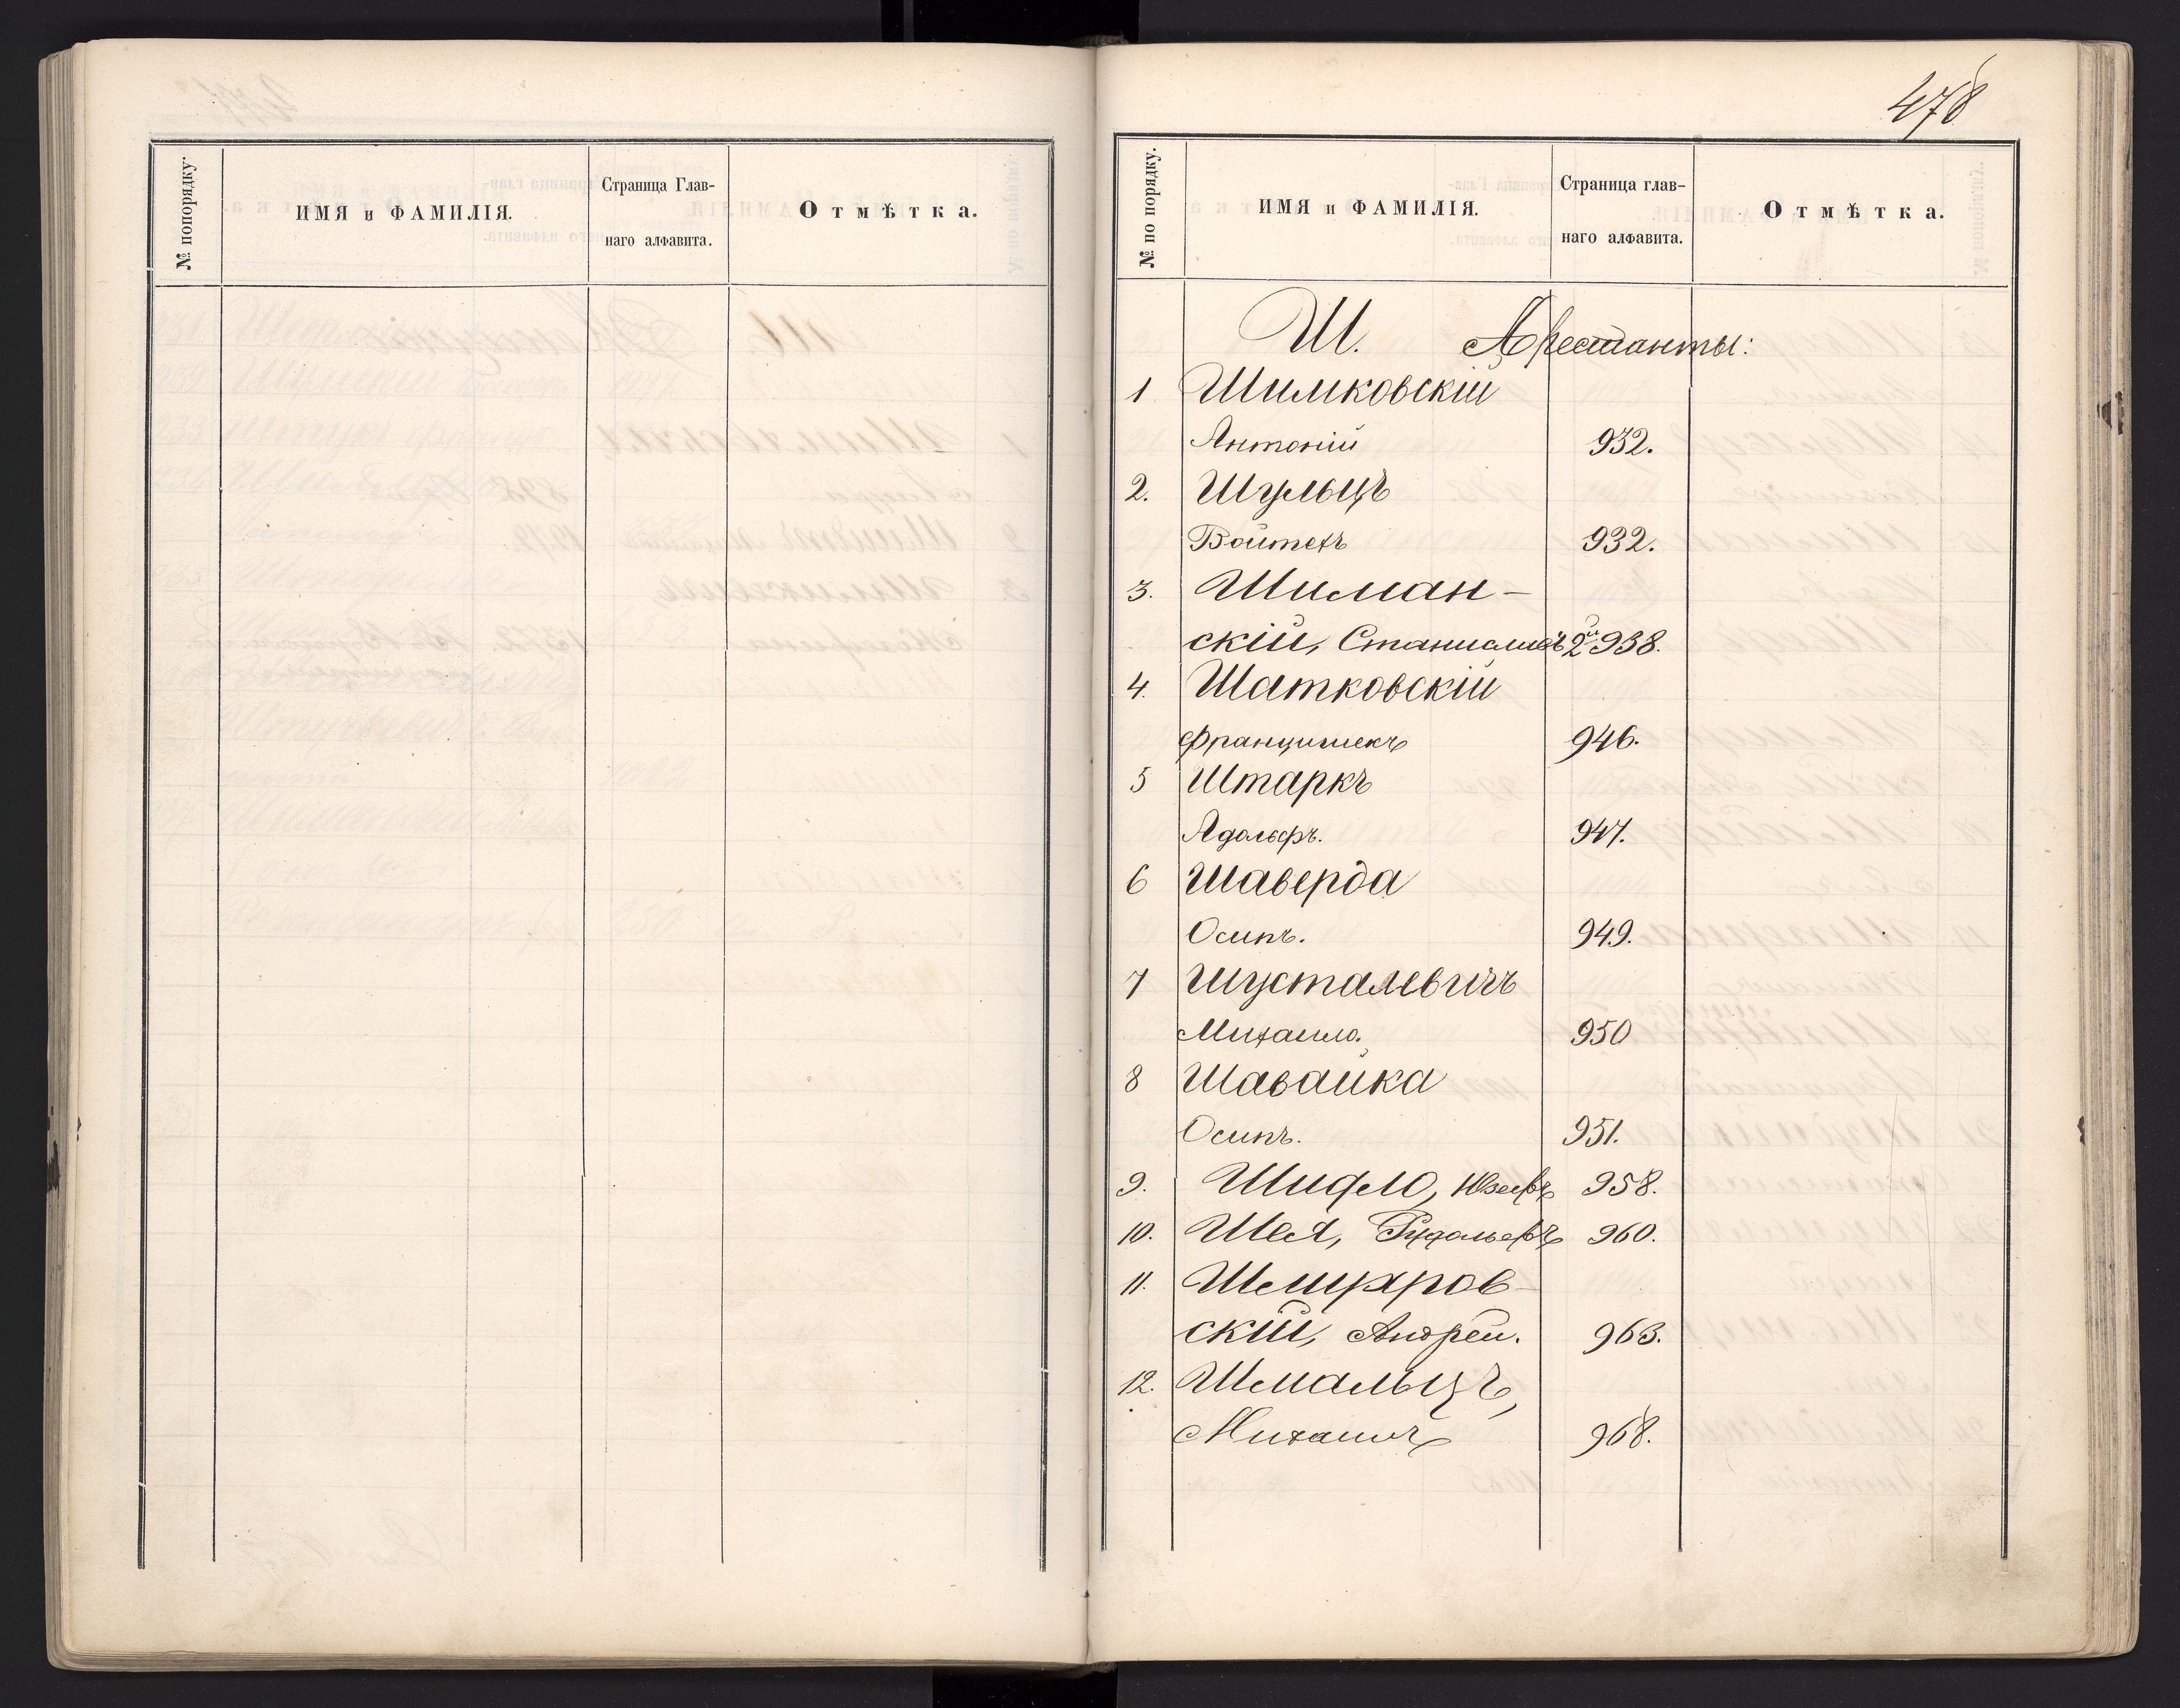 № попорядку.
ИМЯ и ФАМИЛІЯ.
Страница Глав-
наго алфавита.
Отмѣтка.
478
№ по порядку.
ИМЯ и ФАМИЛІЯ.
Страница глав-
наго алфавита.
Отмѣтка.
Ш. Арестанты:
1 Шимковскій
Антоній 932.
2. Шульцъ
Войтехъ 932.
3. Шиман-
скій, Станиславъ 2й 938.
4. Шатковскій
Францишекъ 946.
5 Штаркъ
Адольфъ. 947.
6 Шаверда
Осипъ. 949.
7 Шусталевичъ
Михаило. 950
8 Шавайка
Осипъ. 951.
9. Шифло, Юзефъ 958.
10. Шел, Рудольфъ 960.
11.
скій, Андрей. 963.
12. Шмальцъ,
Михаилъ 968.